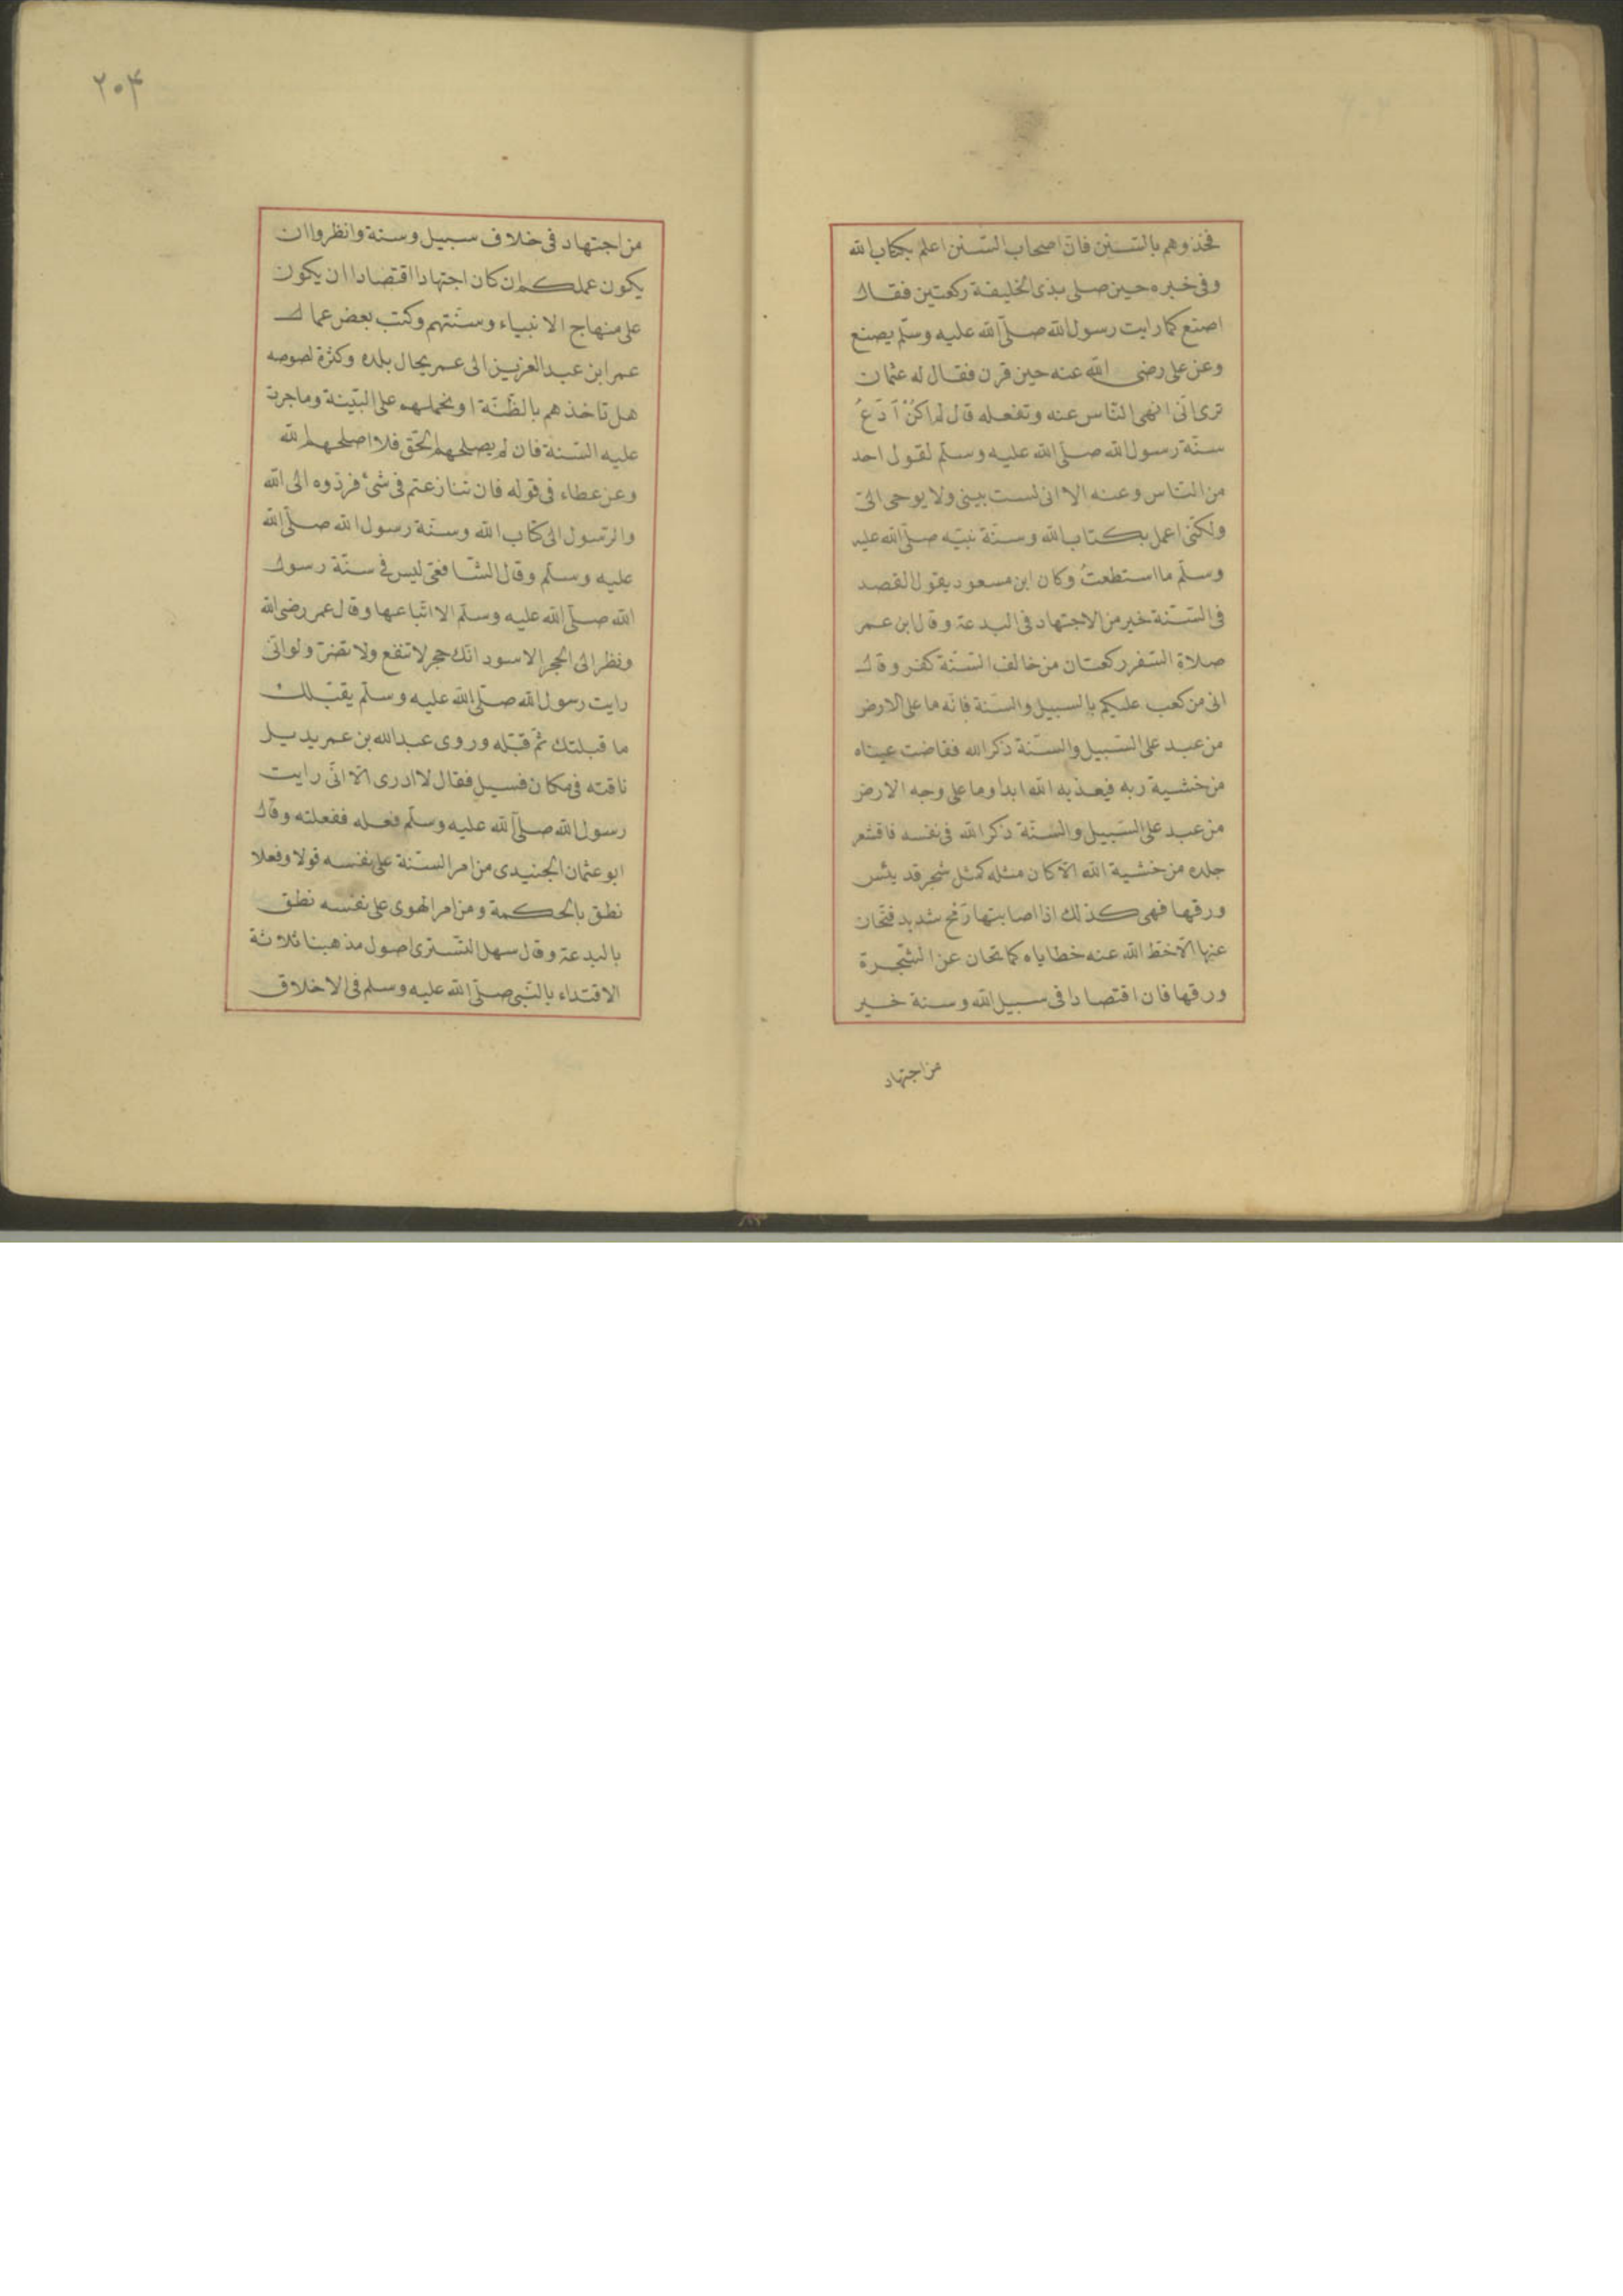 فخذوهم بالسّنن فانّ اصحاب السّنن اعلم بكتاب الله
وفى خبره حين صلى بذى الخليفة ركعتين فقال
اصنع كما رايت رسول الله صلّى الله عليه وسلّم يصنع
وعن على رضى الله عنه حين قرن فقال له عثمان
ترى انّى انهى النّاس عنه وتفعله قال لم اكنْ اَدَعُ
سنّة رسول الله صلّى الله عليه وسلّم لقول احد
من النّاس وعنه الا انى لست بينى ولا يوحى الىّ
ولكنّى اعمل بكتاب الله وسنّة نبيّه صلّى الله عليه
وسلّم ما استطعتُ وكان ابن مسعود يقول القصد
فى السّنة خير من الاجتهاد فى البدعة وقال ابن عمر
صلاة السّفر ركعتان من خالف السّنّة كفر وقال
ابى من كعب عليكم بالسبيل والسنة فانّه ما على الارض
من عبد على السّبيل والسّنّة ذكر الله ففاضت عيناه
من خشية ربه فيعذبه الله ابدا وما على وجه الارض
من عبد على السّبيل والسنّة ذكر الله فى نفسه فاقشعر
جلده من خشية الله الّا كان مثله كمثل شجر قد يئس
ورقها فهى كذلك اذا اصابتها رمح شديد فتحات
عنها الّا حطّ الله عنه خطاياه كما تحات عن الشّجرة
ورقها فان اقتصادا فى سبيل الله وسنة خير
من اجتهاد
٢٠٤
من اجتهاد فى خلاف سبيل وسنة وانظروا ان
يكون عملكم ان كان اجتهادا اقتصادا ان يكون
على منهاج الانبياء وسنّتهم وكتب بعض عمال
عمر ابن عبد العزيز الى عمر بحال بلده وكثرة لصوصه
هل تاخذهم بالظّنّة او نحملهم على البيّنة وما جرت
عليه السّنة فان لم يصلحهم الحقّ فلا اصلحهم الله
وعن عطاء فى قوله فان تنازعتم فى شئ فردّوه الى الله
والرّسول الى كتاب الله وسنّة رسول الله صلّى الله
عليه وسلّم وقال الشّافعى ليس فى سنّة رسول
الله صلّى الله عليه وسلّم الا اتّباعها وقال عمر رضى الله
ونظر الى الحجر الاسود انّك حجر لا تنفع ولا تضرّ ولو انّى
رايت رسول الله صلّى الله عليه وسلّم يقبّلك
ما قبلتك ثمّ قبّله وروى عبد الله بن عمر يديل
ناقته فى مكان فسيل فقال لا ادرى الّا انّى رايت
رسول الله صلّى الله عليه وسلّم فعله ففعلته وقال
ابو عثمان الجنيدى من امر السّنة على نفسه قولا وفعلا
نطق بالحكمة ومن امر الهوى على نفسه نطق
بالبدعة وقال سهل التّسترى اصول مذهبنا ثلاثة
الاقتداء بالنّبى صلّى الله عليه وسلم فى الاخلاق